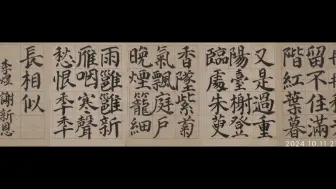 留不住滿
階紅葉暮
又是過重
陽臺榭登
臨處茱萸
香墜紫菊
氣飄庭戶
晚煙籠細
雨雝雝新
雁咽寒聲
愁恨秊秊
長相似
李煜 謝新恩
2024.10.11 2